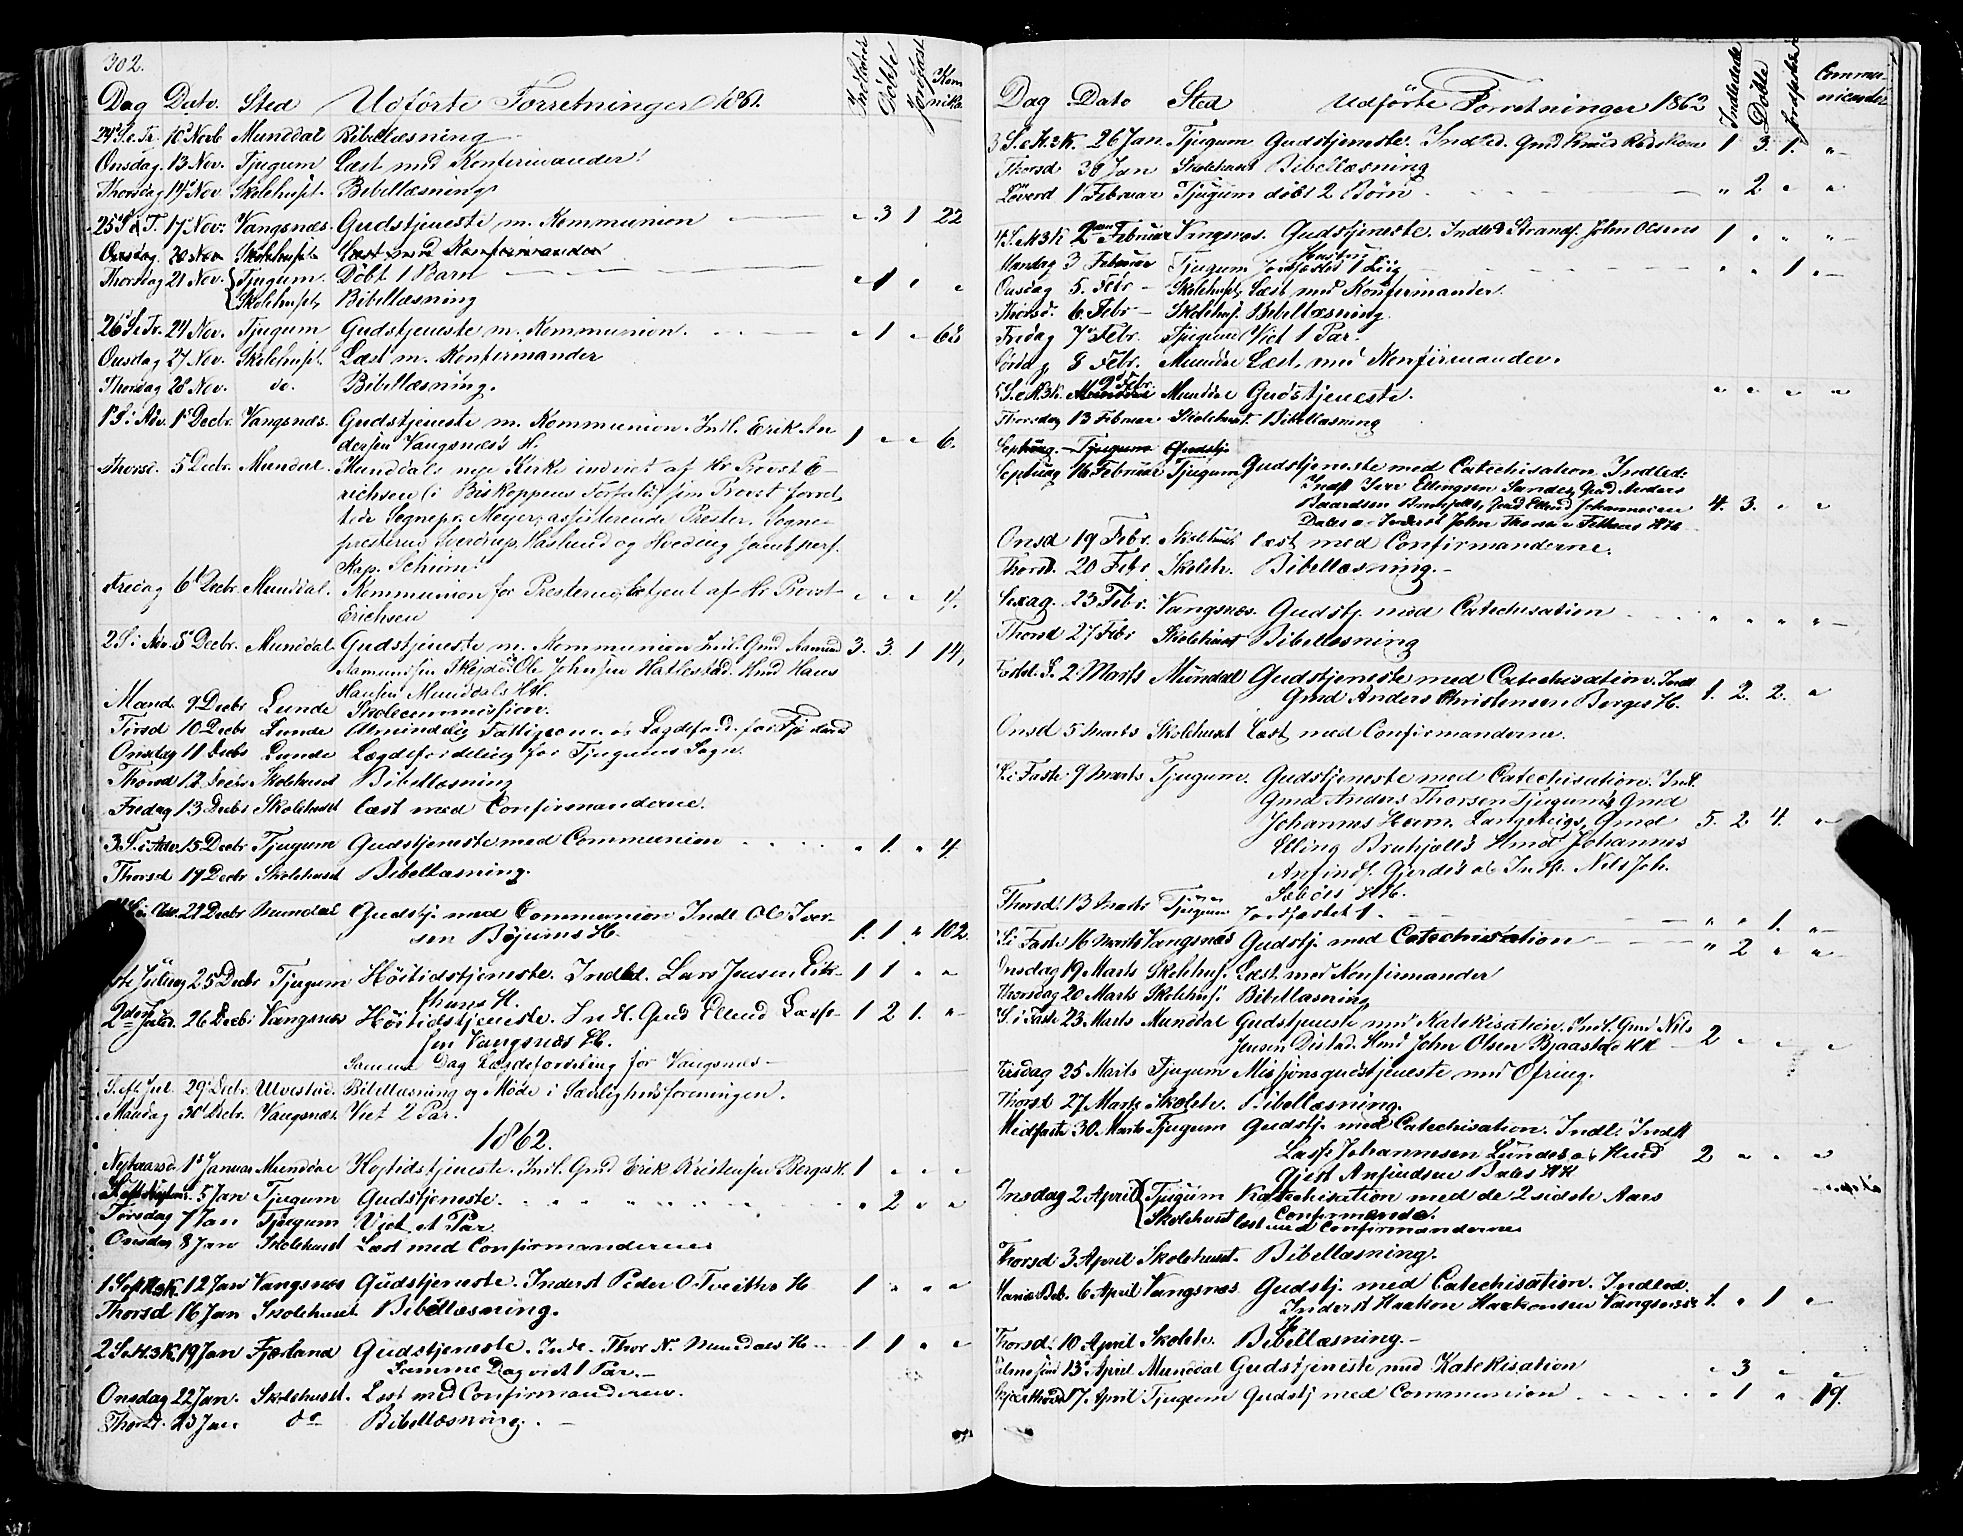 302.
Dag Dato. Sted Udförte Forretninger 1861. Indledede Döbte Jordfæst. Kommunik.
24 S. e. Tr. 10 Novb Munddal Bibellæsning
Onsdag 13 Nov. Tjugum Læst med Konfirmander.
Thorsdag 14 Nov Skolehuset. Bibellæsning
25 S e T. 17 Nov. Vangsnæs. Gudstjeneste m. Kommunion " 3 1 22
Onsdag 20 Nov Skolehuset Læst med Konfirmander
Thorsdag 21 Nov. Tjugum. Döbt 1 Barn " 1 " "
Skolehuset. Bibellæsning
26 S e Tr. 24 Nov. Tjugum Gudstjeneste m. Kommunion. " 1 " 68
Onsdag 27 Nov. Skolehuset. Læst m. Konfirmander
Thorsdag 28 Nov. do. Bibellæsning.
1 S i Adv. 1 Decbr. Vangsnæs. Gudstjeneste m. Kommunion. Indl. Erik An
dersen Vangsnæs's H. 1 " " 6.
Thorsd. 5 Decbr. Mundal. Munddals nye Kirke indviet af Hr Provst E-
richsen (i Biskoppens Forfald) som Provst forret.
tede Sognepr. Meyer, assisterende Prester. Sogne-
presterne Sverdrup, Haslund og Hvoding samt pers.
Kap. Schim.
Fredag 6 Decbr. Munddal. Kommunion for Presterne, betjent af Hr Provst " " " 4.
Erichsen
2 S i Adv. Decbr. Munddal. Gudstjeneste m. Kommunion Indl. Gmd Aamund 3. 3. 1 14,
Aamundsen Ole Johnsen Hatlestad. Hmd Hans
Hansen Munddals HH.
Mand. 9 Decbr Lunde Skolecommission.
Tirsd 10 Decbr Lunde Almindelig Fattigcom. & Lægdeford. for
Onsdag 11 Decbr Lunde Lægdefordeling for Tjugums Sogn.
Thorsd 12 Decbr Skolehuset Bibellæsning
Fredag 13 Decbr Skolehuset læst med Confirmanderne.
3 S. i Adv 15 Decbr Tjugum Gudstjeneste med Communion " 1. " 4
Thorsd 19 Decbr Skolehuset Bibellæsning.
S i Adv. 22 Decbr Mundal Gudstj. med Communion Indl. Ole Iver-
sen Böjums H. 1. 1 " 102.
Juledag 25 Decbr Tjugum Höitidstjeneste. Indled. Lars Jensen Eik- 1 1 " "
H.
2den Juled. 26 Decbr Vangsnæs Höitidstjeneste. Indl. Gmd Ellend Lasse- 1 2 1. "
sen Vangsnæs H.
Samme Dag Lægdefordeling for Vangsnæs-
S. eft. Jul. 29 Decbr. Ulvestad. Bibellæsning og Möde i Sædelighedsforeningen.
Mandag 30 Decbr. Vangsnæs Viet 2 Par.
1862.
Nytaarsd. 1 Januar Mundal Höjtidstjeneste. Indl. Gmd Erik Kristensen Berges H. 1 " " "
S eft Nytaar 5 Jan Tjugum Gudstjeneste. " 2 " "
Tirsdag 7 Jan Tjugum Viet et Par
Onsdag 8 Jan Skolehuset Læst med Confirmanderne
1 S eft H3K. 12 Jan Vangsnæs Gudstjeneste. Inderst Peder O. Tveiths H 1 " " "
Thorsd 16 Jan Skolehuset Bibellæsning.
2 S e H3K 19 Jan Fjærland Gudstjeneste. Inds. Thor N. Mundals H 1 1 " "
Samme Dag viet 1 Par.
Onsdag 22 Jan. Skolehuset. Læst med Confirmanderne.
Thorsd. 23 Jan. do Bibellæsning.
Dag Dato Sted Udförte Forretninger 1862 Indledede Döbte Jordfæstede Communicender
3 S. e H3K 26 Jan. Tjugum Gudstjeneste. Indled. Gmd Knud 1 3. 1. "
Thorsd 30 Jan Skolehuset Bibellæsning
Löverd 1 Februar Tjugum döbt 2 Börn " 2 " "
4 S. e H3K 2 Februar Vangsnæs. Gudstjeneste. Indled Strands. John Olsens 1 " " "
Mandag 3 Februar Tjugum Jordfæstet 1 Liig " " 1 "
Onsdag 5. Febr Skolehuset, Læst med Konfirmander.
Thorsd. 6 Febr Skolehus. Bibellæsning.
Fredag 7 Febr. Tjugum Viet 1 Par.
Lördag 8 Febr. Munddal Læst med Konfirmander.
5 S. e H3K. 9 Febr. Munddal Gudstjeneste. " " " "
Thorsdag 13 Februar Skolehuset Bibellæsning
Septuag. Tjugum Gudstj
Septuag 16 Februar Tjugum Gudstjeneste med Catechisation Indled:
Indst Iver Ellingsen Sandes, Gmd Anders
Baardsen Gmd Ellend Johannesen 4. 3. " "
Dales & Inderst John
Onsd 19 Febr. Skolehuset læst med Confirmanderne.
Thorsd. 20 Febr Skoleh. Bibellæsning.
Sexag. 23 Febr. Vangsnæs. Gudstj. med Catechisation " " " "
Thorsd 27 Febr Skolehuset Bibellæsning
Fastel. S. 2 Marts Mundal Gudstjeneste med Catechisation. Indl
Gmd Anders Christensen Berges H. 1. 2. 2. "
Onsd 5 Marts Skolehuset Læst med Confirmanderne.
S. i Faste 9 Marts Tjugum. Gudstjeneste med Catechisation. Indl.
Gmd Anders Thorsen Tjugums Gmd
Johannes Gmd 5. 2 4. "
Elling Hmd Johannes
Arfinds. Gjerdes & Indst. Nils Joh.
HH.
Thorsd. 13 Marts Tjugum Jordfæstet 1. " " 1. "
S i Faste 16 Marts Vangsnæs Gudstj. med Catechisation " 2 " "
Onsdag 19 Marts Skolehus. Læst med Konfirmander
Thorsdag 20 Marts Skolehus. Bibellæsning
S. i Faste 23 Marts Munddal Gudstjeneste med Katekisation. Indl. Gmd Nils
Jensen Distad. Hmd John Olsen Bjaastad HH 2 " " "
Tirsdag 25 Marts Tjugum Missjonsgudstjeneste med Ofring.
Thorsd 27 Marts Skoleh. Bibellæsning.
Midfaste 30 Marts Tjugum Gudstj. med Catechisation. Indl. Indst
Lasse Johannesen Lundes & Hmd 2 " " "
Gjert Anfindsen Bales HH
Onsdag 2 April Tjugum Katechisation med de 2 sidste Aars
Confirmander.
Skolehuset læst med Confirmanderne
Thorsd 3 April Skolehuset. Bibellæsning.
Mariæ Beb. 6 April Vangsnæs Gudstj. med Catechisation. Indled.
Inderst Haakon Haakonsen Vangsnæs 1. " 1 "
H.
Thorsd. 10 April Skoleh. Bibellæsning.
Palmesönd 13 April Munddal Gudstjeneste med Katekisation " 3 " "
Skjærthorsd 17 April Tjugum Gudstj med Communion " 1 " 19.